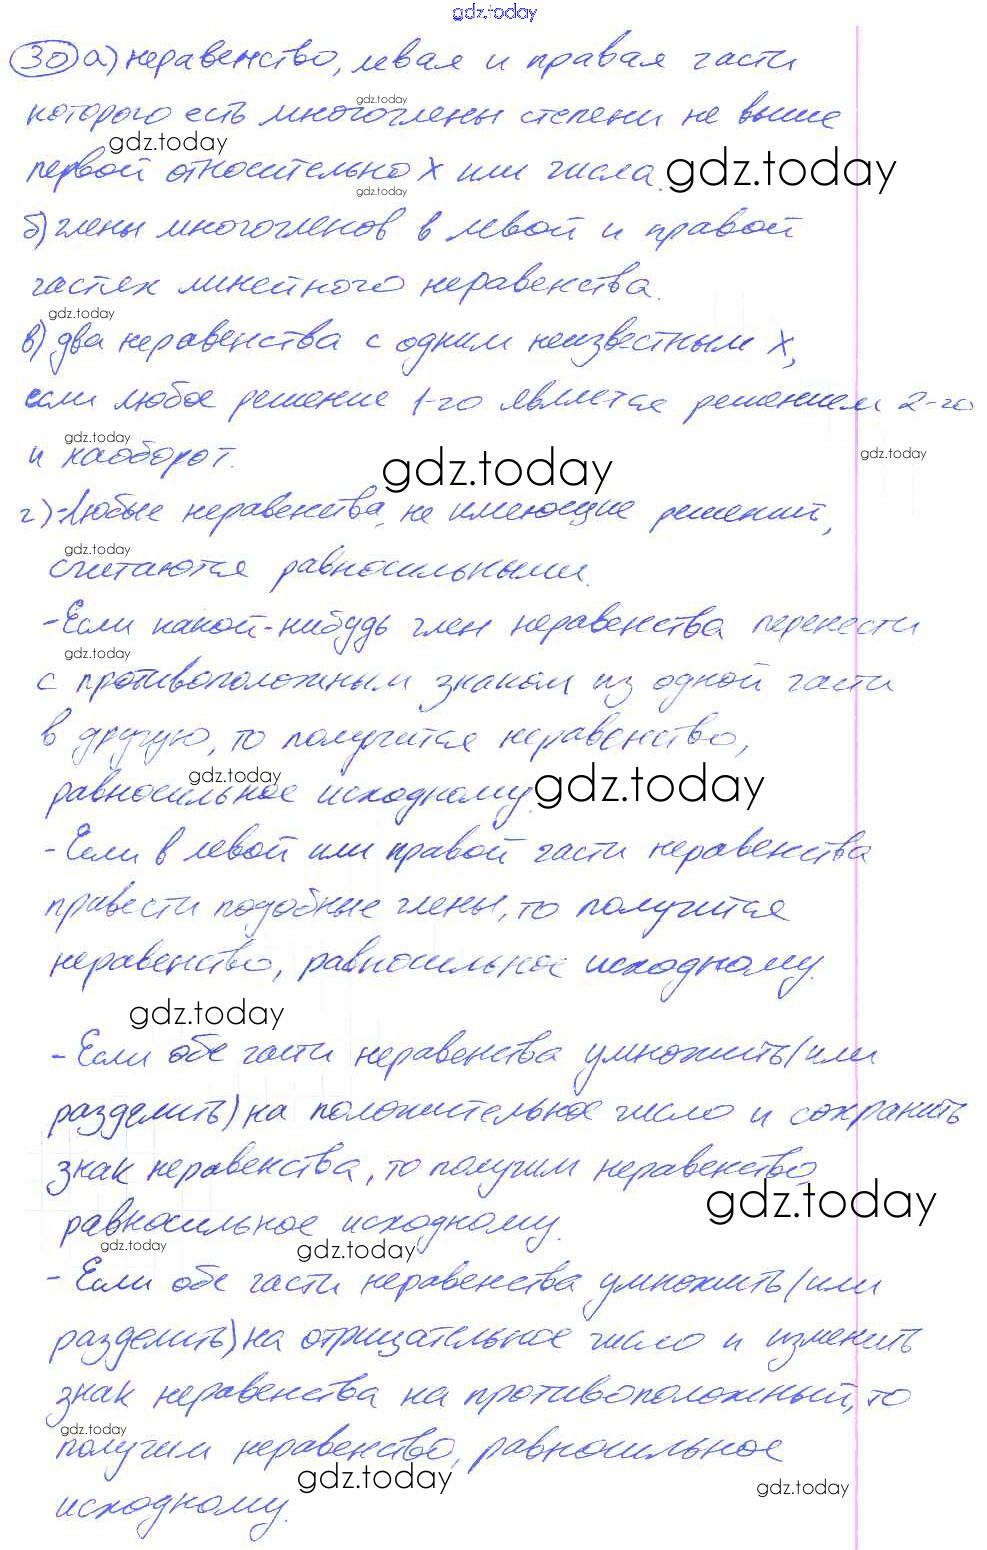 gdz.today
30 а) неравенство, левая и правая части
gdz.today
которого есть многочлены степени не выше
gdz.today
первой относительно х или числа. gdz.today
gdz.today
б) члены многочленов в левой и правой
частях линейного неравенства.
gdz.today
в) два неравенства с одним неизвестным х,
если любое решение 1-го является решением 2-го
gdz.today
и наоборот. gdz.today gdz.today
г) -Любые неравенства, не имеющие решений,
gdz.today
считаются равносильными.
-Если какой-нибудь член неравенства перенести
gdz.today
с противоположным знаком из одной части
в другую, то получится неравенство,
gdz.today
равносильное исходному. gdz.today
-Если в левой или правой части неравенства
привести подобные члены, то получится
неравенство, равносильное исходному.
gdz.today
-Если обе части неравенства умножить (или
разделить) на положительное число и сохранить
знак неравенства, то получим неравенство,
gdz.today
равносильное исходному.
gdz.today gdz.today
-Если обе части неравенства умножить (или
разделить) на отрицательное число и изменить
знак неравенства на противоположный, то
gdz.today
получим неравенство, равносильное
gdz.today gdz.today
исходному.